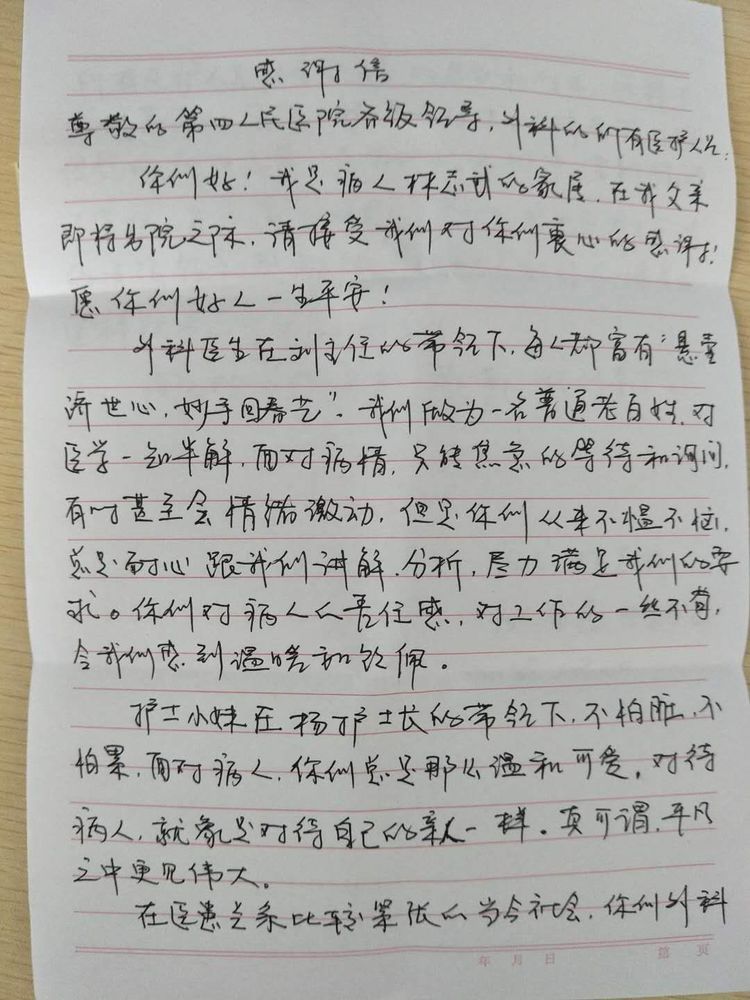 感谢信
尊敬的第四人民医院各级领导，外科的所有医护人员：
你们好！我是病人林志武的家属，在我父亲
即将出院之际，请接受我们对你们衷心的感谢！
愿你们好人一生平安！
外科医生在刘主任的带领下，每人都富有“悬壶
济世心，妙手回春艺”。我们做为一名普通老百姓，对
医学一知半解，面对病情，只能焦急的等待和询问，
有时甚至会情绪激动，但是你们从来不愠不恼，
总是耐心跟我们讲解、分析，尽力满足我们的要
求。你们对病人的责任感，对工作的一丝不苟，
令我们感到温暖和钦佩。
护士小妹在杨护士长的带领下，不怕脏，不
怕累，面对病人，你们总是那么温和可爱，对待
病人，就象是对待自己的亲人一样。真可谓，平凡
之中更见伟大。
在医患关系比较紧张的当今社会，你们外科
年 月 日 第 页